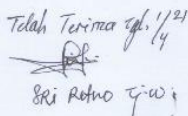 Telah Terima tgl. 1/4 21
SRi Retno Tj.W.